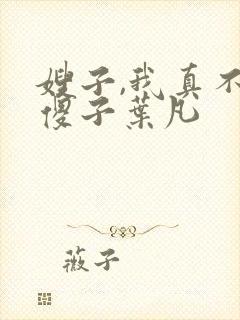 嫂子,我真不
傻子葉凡
薇子